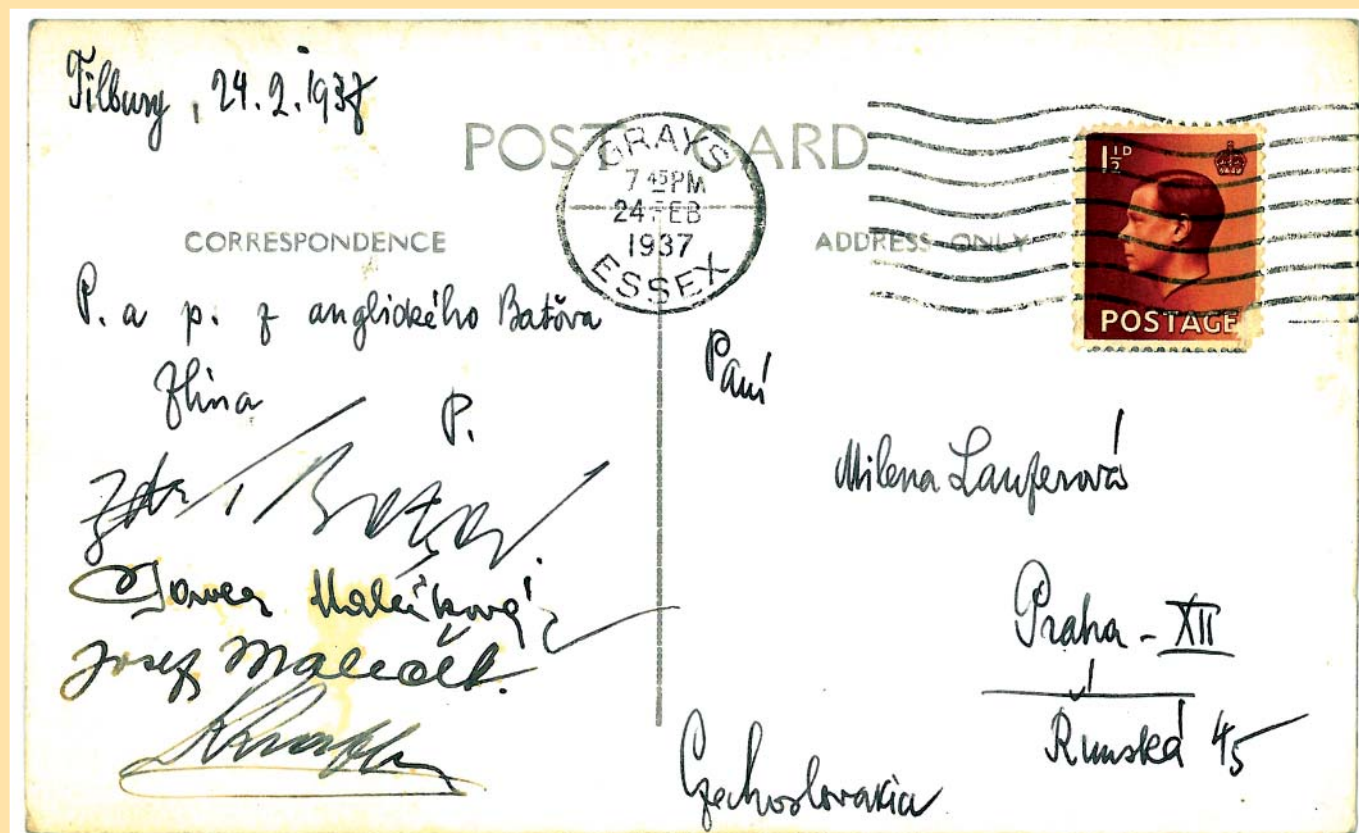 Tilbury, 24.2.1937
POST CARD
GRAYS
7 45 PM
24 FEB
1937
ESSEX
1½D
POSTAGE
CORRESPONDENCE
ADDRESS ONLY
P. a p. z anglického Baťova
Zlína
P.
Josef
Paní
Milena Lauferová
Praha - XII
Římská 45
Czechoslovakia